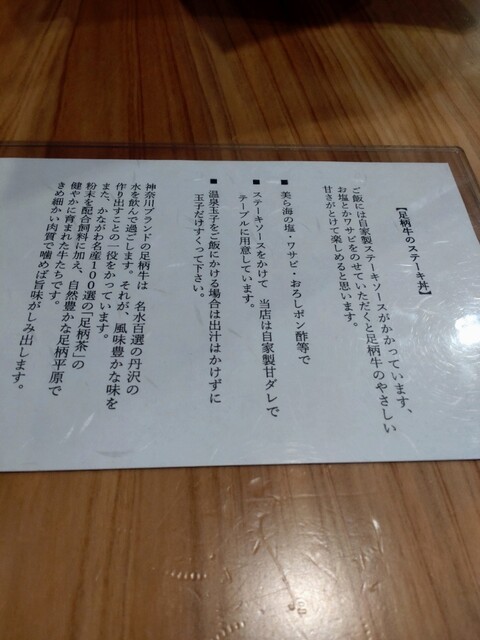 【足柄牛のステーキ丼】
ご飯には自家製ステーキソースがかかっています、
お塩とかワサビをのせていただくと足柄牛のやさしい
甘さがとけて楽しめると思います。
■ 美ら海の塩・ワサビ・おろしポン酢等で
■ ステーキソースをかけて 当店は自家製甘ダレで
テーブルに用意しています。
■ 温泉玉子をご飯にかける場合は出汁はかけずに
玉子だけすくって下さい。
神奈川ブランドの足柄牛は 名水百選の丹沢の
水を飲んで過ごします。それが、風味豊かな味を
作り出すことの一役をかっています。
また、かながわ名産100選の「足柄茶」の
粉末を配合飼料に加え、自然豊かな足柄平原で
健やかに育まれた牛たちです。
きめ細かい肉質で噛めば旨味がしみ出します。